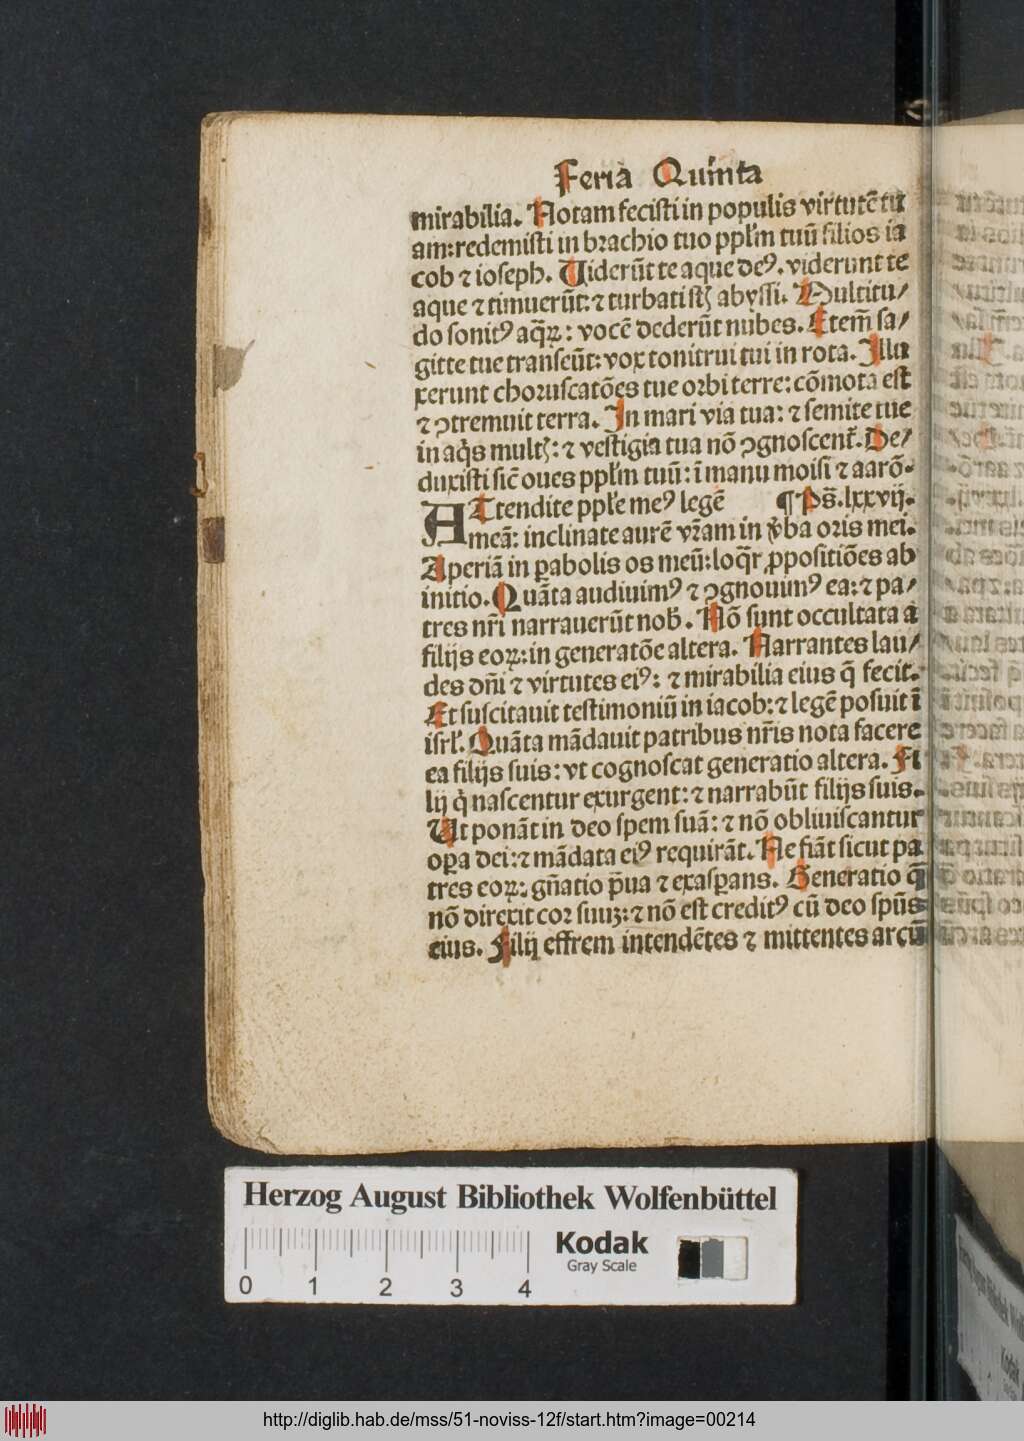 Feria Quinta
mirabilia. Notam fecisti in populis virtutē tu
am: redemisti in brachio tuo ppl'm tuū filios ia
cob ⁊ ioseph. Viderūt te aque deꝰ. viderunt te
aque ⁊ timuerūt: ⁊ turbati st̄ abyssi. Multitu/
do sonitꝰ aq̄ꝝ: vocē dederūt nubes. Etem̄ sa/
gitte tue transeūt: vox tonitrui tui in rota. Illu
xerunt choruscatōes tue orbi terre: cōmota est
⁊ ꝯtremuit terra. In mari via tua: ⁊ semite tue
in aq̇s multꝭ: ⁊ vestigia tua nō ꝯgnoscent̃. De/
duxisti sic̄ oues ppl'm tuū: ī manu moisi ⁊ aarō.
ATtendite pple meꝰ legē ¶Ps̄. lxxvij.
meā: inclinate aurē vr̄am in v̓ba oris mei.
Aperiā in ꝑabolis os meū: loq̄r ꝓpositiōes ab
initio. Quāta audiuimꝰ ⁊ ꝯgnouimꝰ ea: ⁊ pa/
tres nr̄i narrauerūt nob̓. Nō sunt occultata a
filijs eoꝝ: in generatōe altera. Narrantes lau/
des dn̄i ⁊ virtutes eiꝰ: ⁊ mirabilia eius q̄ fecit.
Et suscitauit testimoniū in iacob: ⁊ legē posuit ī
isrl'. Quāta mādauit patribus nr̄is nota facere
ea filijs suis: vt cognoscat generatio altera. Fi
lij q̇ nascentur exurgent: ⁊ narrabūt filijs suis.
Ut ponāt in deo spem suā: ⁊ nō obliuiscantur
oꝑa dei: ⁊ mādata eiꝰ requirāt. Ne fiāt sicut pa
tres eoꝝ: gn̄atio p̄ua ⁊ exasꝑans. Generatio q̄
nō direxit cor suuꝫ: ⁊ nō est creditꝰ cū deo spūs
eius. Filij effrem intendētes ⁊ mittentes arcū
Herzog August Bibliothek Wolfenbüttel
Kodak
Gray Scale
0 1 2 3 4
http://diglib.hab.de/mss/51-noviss-12f/start.htm?image=00214